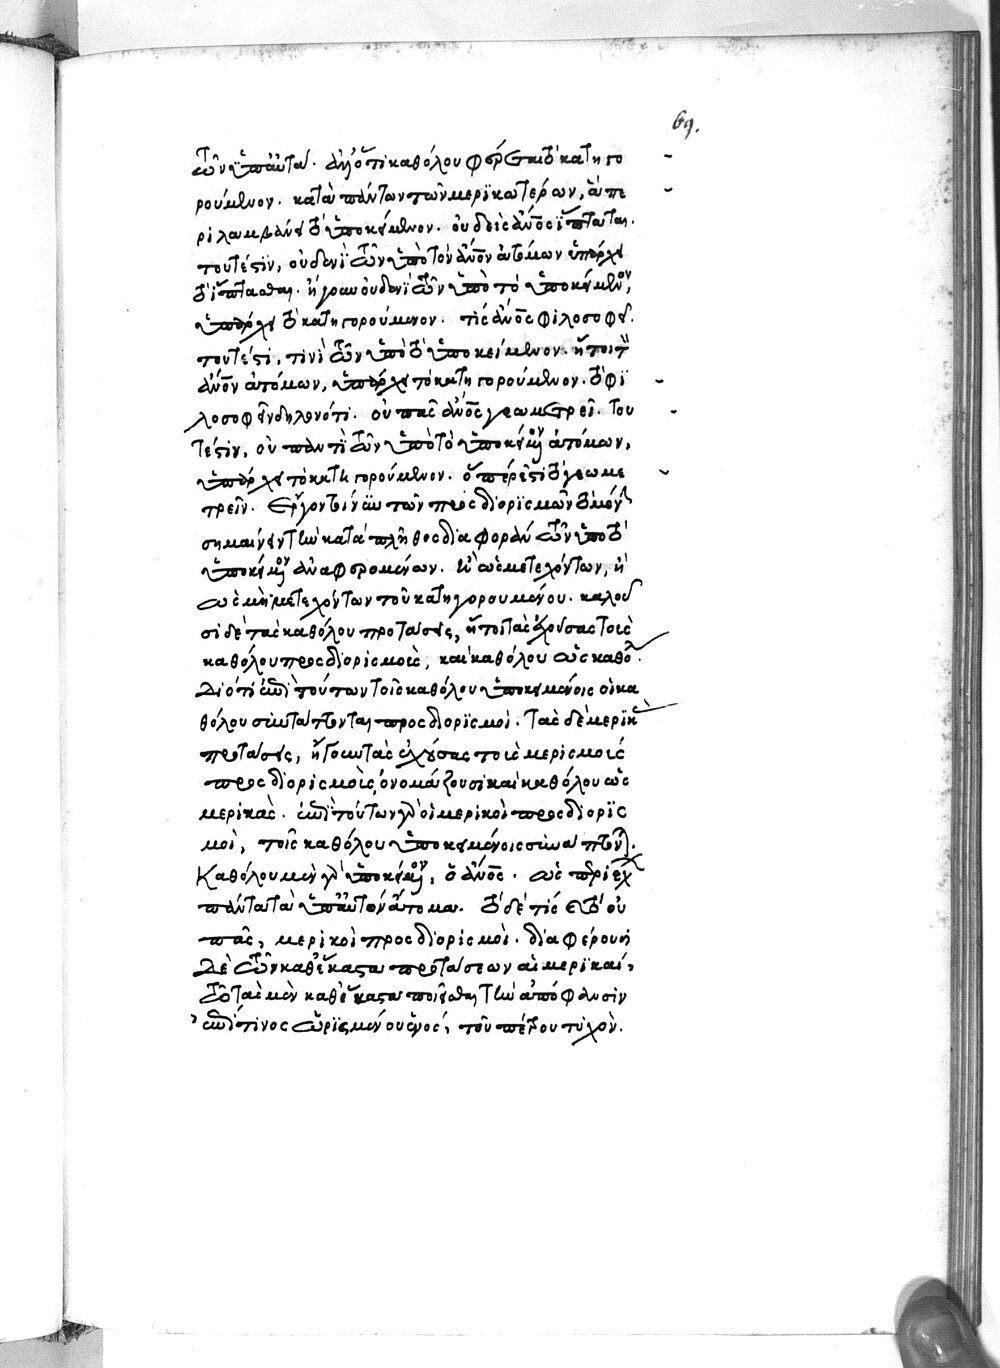 69.
τῶν ὑπ' αὐτά. δηλοῖ ὅτι καθόλου φέρεται τὸ κατηγο
ρούμενον. κατὰ πάντων τῶν μερικωτέρων, ἃ πε
ριλαμβάνει τὸ ὑποκείμενον. οὐδεὶς ἄνος ἵπταται.
τουτέστιν, οὐδενὶ τῶν ὑπὸ τὸν ἄνον ἀτόμων ὑπάρχει
τὸ ἵπτασθαι. ἤγουν οὐδενὶ τῶν ὑπὸ τὸ ὑποκείμενον,
ὑπάρχει τὸ κατηγορούμενον. τὶς ἄνος φιλοσοφεῖ.
τουτέστι, τινὶ τῶν ὑπὸ τὸ ὑποκείμενον. ἤτοι τὸν
ἄνον ἀτόμων, ὑπάρχει τὸ κατηγορούμενον. τὸ φι
λοσοφεῖν δηλονότι. οὐ πᾶς ἄνος γεωμετρεῖ. του
τέστιν, οὐ παντὶ τῶν ὑπὸ τὸ ὑποκείμενον ἀτόμων,
ὑπάρχει τὸ κατηγορούμενον. ὅπέρ ἐστι τὸ γεωμε
τρεῖν. ἔργον τοίνυν τῶν προσδιορισμῶν τὸ μόνον
σημαίνειν τὴν κατὰ πλῆθος διαφορὰν τῶν ὑπὸ τὸ
ὑποκείμενον ἀναφερομένων. ἢ ὡς μετεχόντων, ἢ
ὡς μὴ μετεχόντων τοῦ κατηγορουμένου. καλοῦ
σι δὲ τὰς καθόλου προτάσεις, ἤτοι τὰς ἐχούσας τοὺς
καθόλου προσδιορισμοὺς, καὶ καθόλου ὡς καθόλου.
Διότι ἐπὶ τούτων τοῖς καθόλου ὑποκειμένοις οἱ κα
θόλου συντάττονται προσδιορισμοί. Τὰς δὲ μερικὰς
προτάσεις, ἤγουν τὰς ἐχούσας τοὺς μερισμοὺς
προσδιορισμοὺς, ὀνομάζουσι καὶ καθόλου ὡς
μερικάς. ἐπὶ τούτων γὰρ οἱ μερικοὶ προσδιορισ
μοὶ, τοῖς καθόλου ὑποκειμένοις συνάπτονται.
Καθόλου μὲν γὰρ ὑποκείμενον, ὁ ἄνος. ὡς περιέχων
πάντα τὰ ὑπ' αὐτὸν ἄτομα. τὸ δὲ τὶς καὶ τὸ οὐ
πᾶς, μερικοὶ προσδιορισμοί. διαφέρουσι
Δὲ τῶν καθ' ἕκαστα προτάσεων αἱ μερικαί,
τῷ τὰς μὲν καθ' ἕκαστα ποιεῖσθαι τὴν ἀπόφανσιν
ἐπί τινος ὡρισμένου ἑνός, τοῦ πέτρου τυχόν.